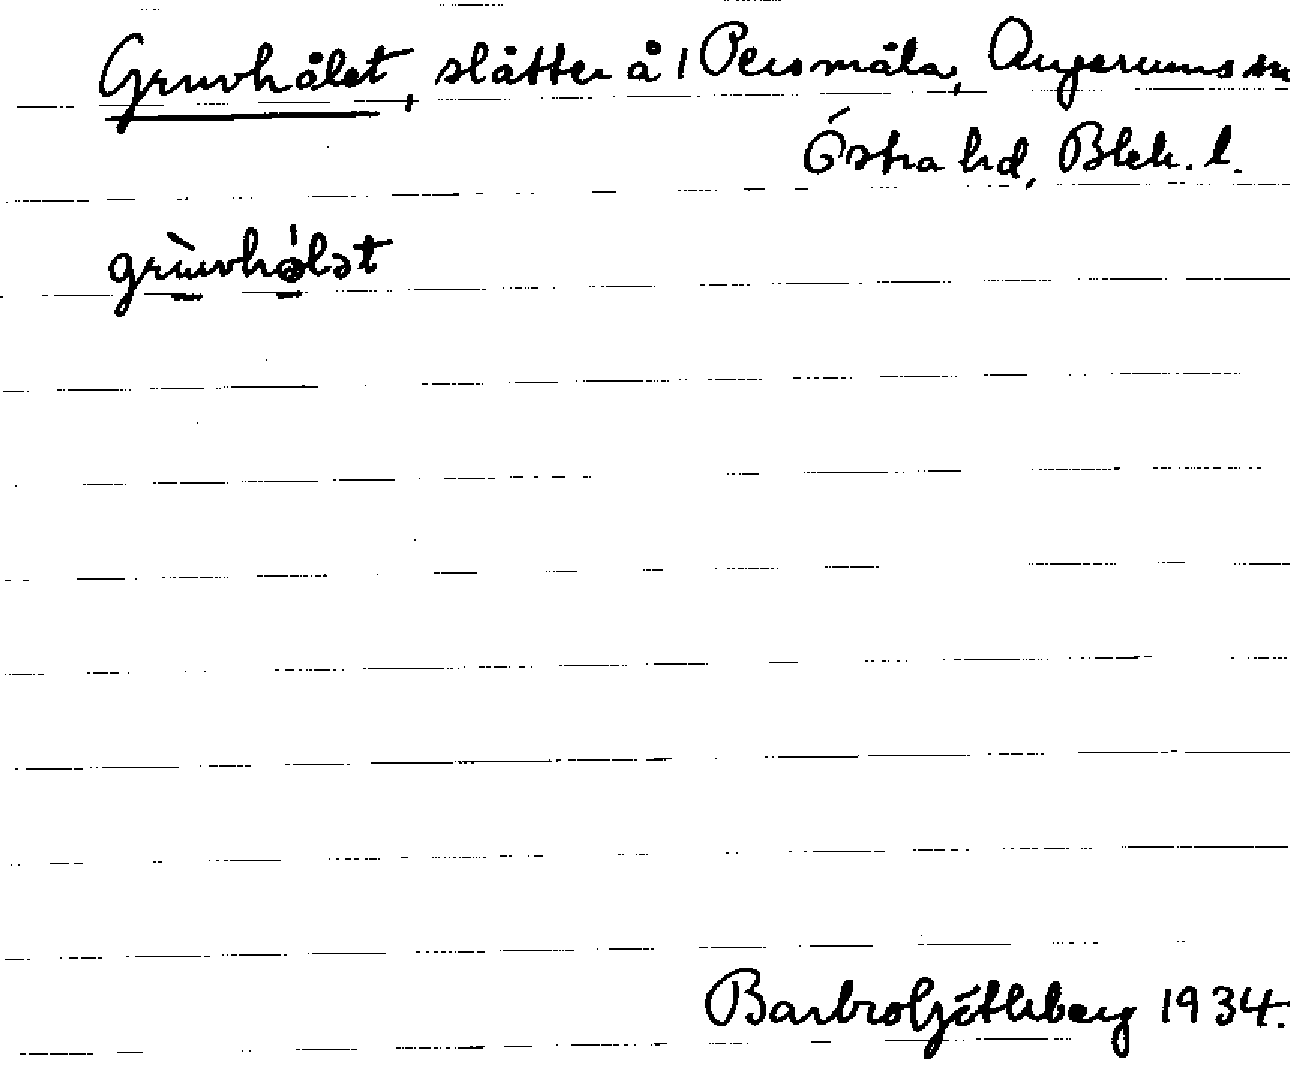 Gruvhålet, slåtter å 1 Persmåla, Augerums sn
Östra hd, Blek. l.
grùvhålət
Barbro Götlberg 1934.